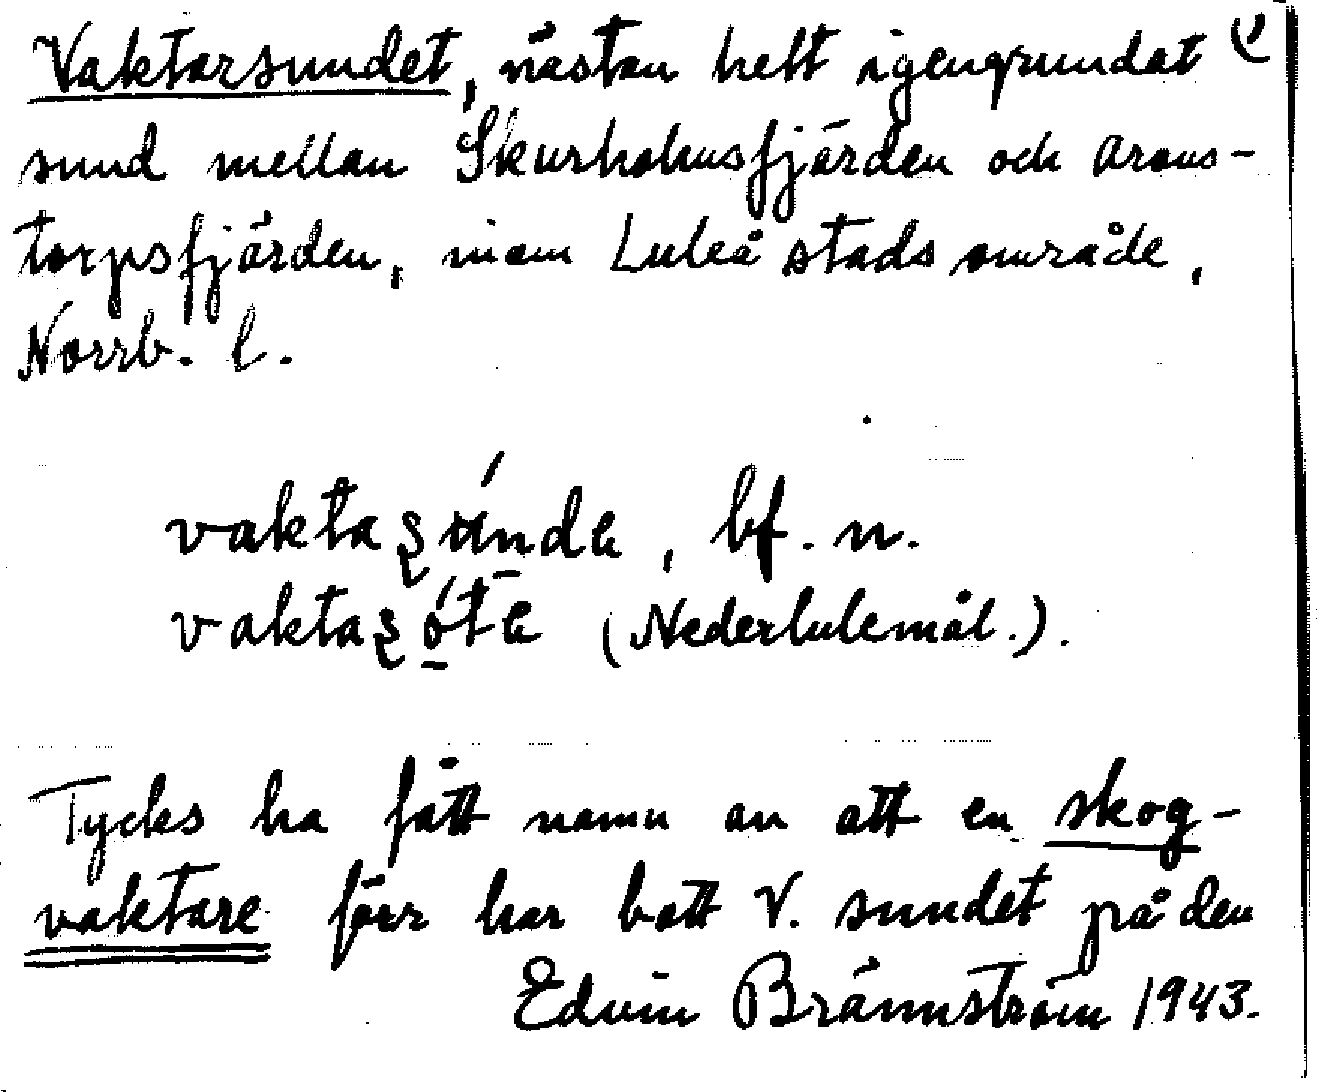 Vaktarsundet, nästan helt igengrundat
sund mellan Skurholmsfjärden och Arons-
torpsfjärden, inom Luleå stadsområde,
Norrb. l.
vaktaʂúnde, bf. n.
vaktaʂóte (Nederlulemål.).
Tycks ha fått namn av att en skog-
vaktare förr har bott v. sundet på den
Edvin Brännström 1943.